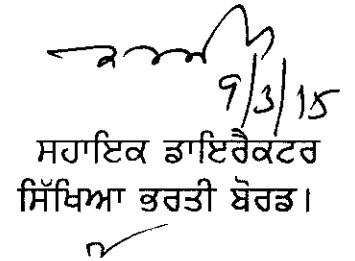 9/3/15
ਸਹਾਇਕ ਡਾਇਰੈਕਟਰ
ਸਿੱਖਿਆ ਭਰਤੀ ਬੋਰਡ।